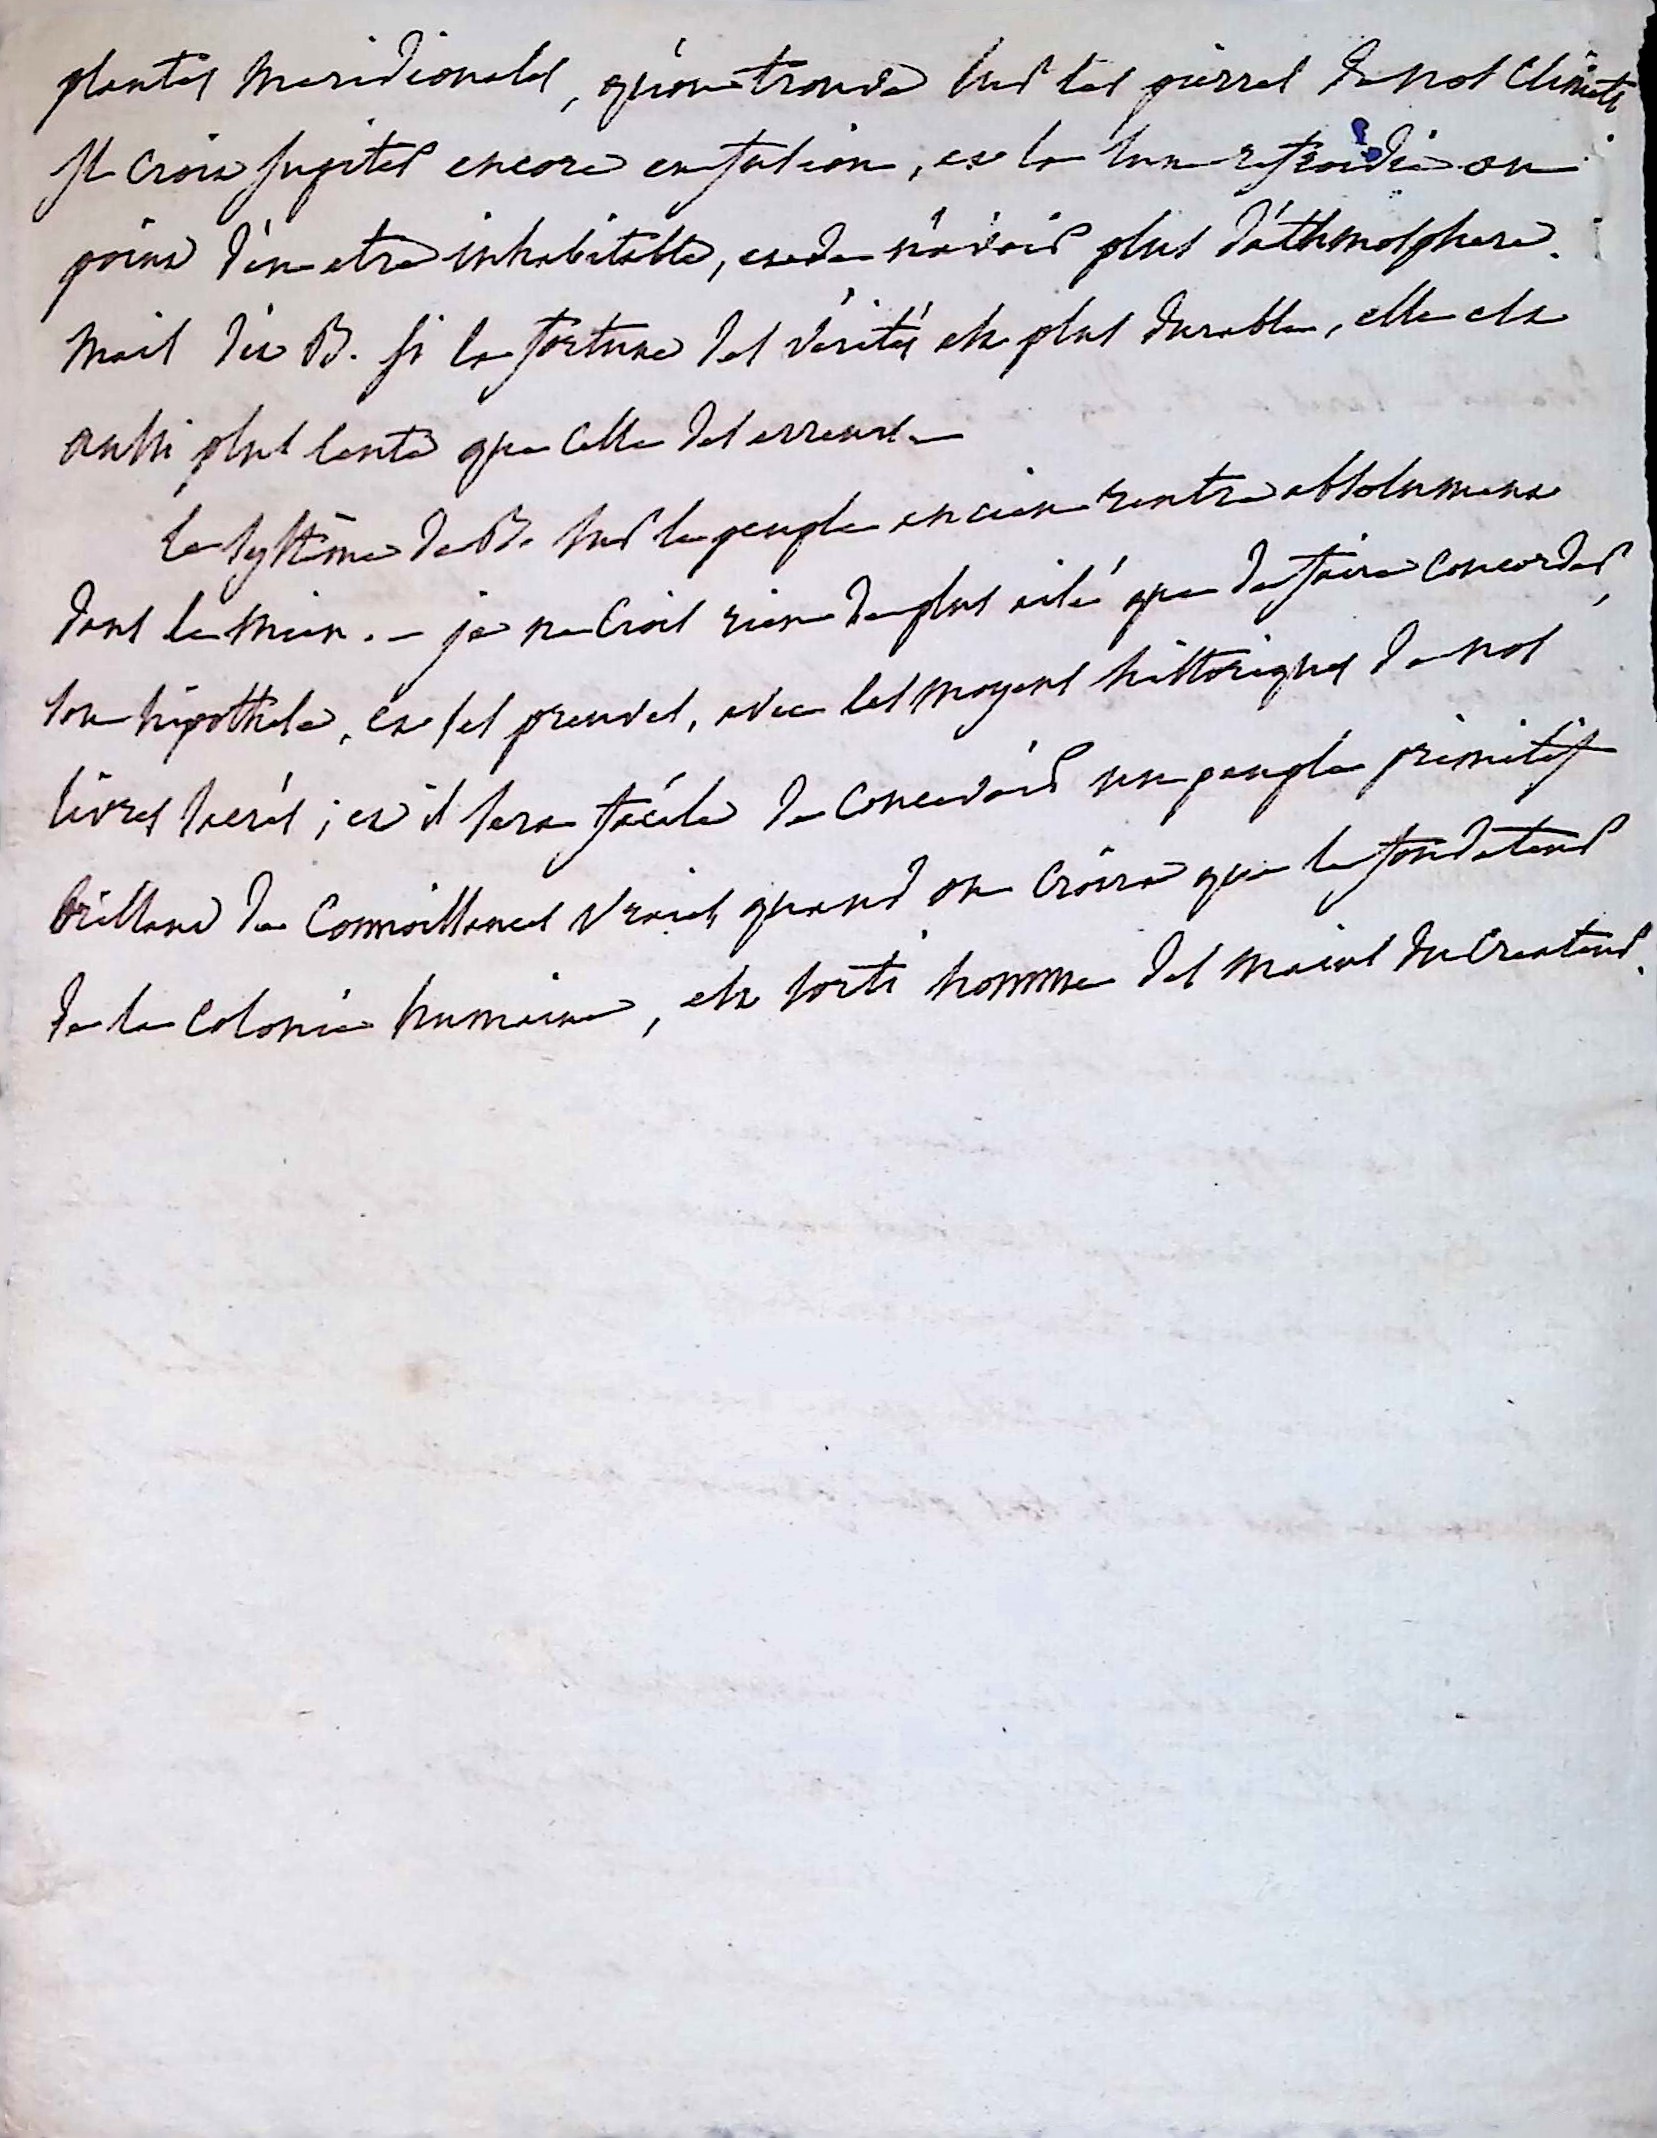 plantes meridionales, qu'on trouve sur les pierres de nos climats
Il croit Jupiter encore en fusion, et la lune refroidie au
point d'en etre inhabitable, et de n'avoir plus d'athmosphere.
mais dit B. si la fortune des vérités est plus durable, elle est
aussi plus lente que celle des erreurs. —
Le systême de B. sur le peuple ancien rentre absolument
dans le mien. — je ne crois rien de plus aisé que de faire concorder,
son hipothese, et ses preuves, avec les moyens historiques de nos
livres sacrés ; et il sera facile de concevoir un peuple primitif
brillant de connoissances vraies, quand on croira que le fondateur
de la colonie humaine, est sorti homme des mains du Createur.